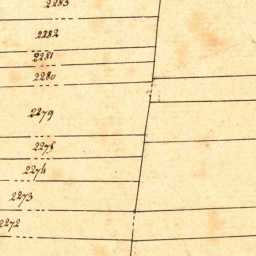 2283
2282
2281
2280
2279
2275
2274
2273
2272